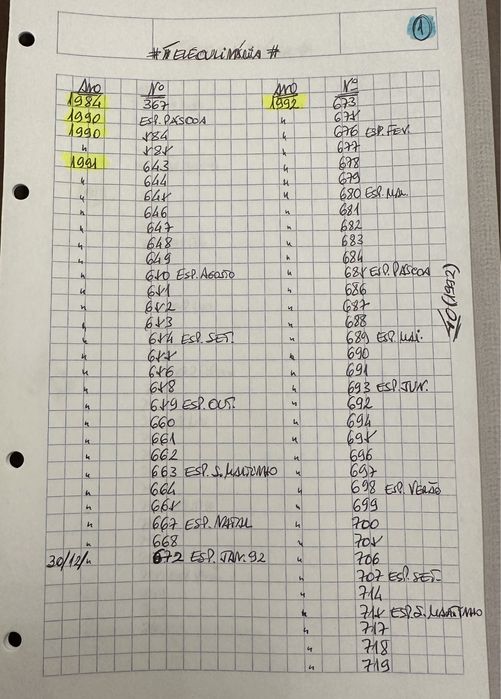 1
# TELECULINÁRIA #
ANO Nº
1984 367
1990 ESP. PÁSCOA
1990 584
" 585
1991 643
" 644
" 645
" 646
" 647
" 648
" 649
" 650 ESP. AGOSTO
" 651
" 652
" 653
" 654 ESP. SET.
" 655
" 656
" 658
" 659 ESP. OUT.
" 660
" 661
" 662
" 663 ESP. S. MARTINHO
" 664
" 665
" 667 ESP. NATAL
" 668
30/12/" 672 ESP. JAN. 92
ANO Nº
1992 673
" 675
" 676 ESP. FEV.
" 677
" 678
" 679
" 680 ESP. MAR.
" 681
" 682
" 683
" 684
" 685 ESP. PÁSCOA
" 686
" 687
" 688
" 689 ESP. MAI.
" 690
" 691
" 693 ESP. JUN.
" 692
" 694
" 695
" 696
" 697
" 698 ESP. VERÃO
" 699
" 700
" 705
" 706
" 707 ESP. SET.
" 714
" 715 ESP. S. MARTINHO
" 717
" 718
" 719
40 (1992)